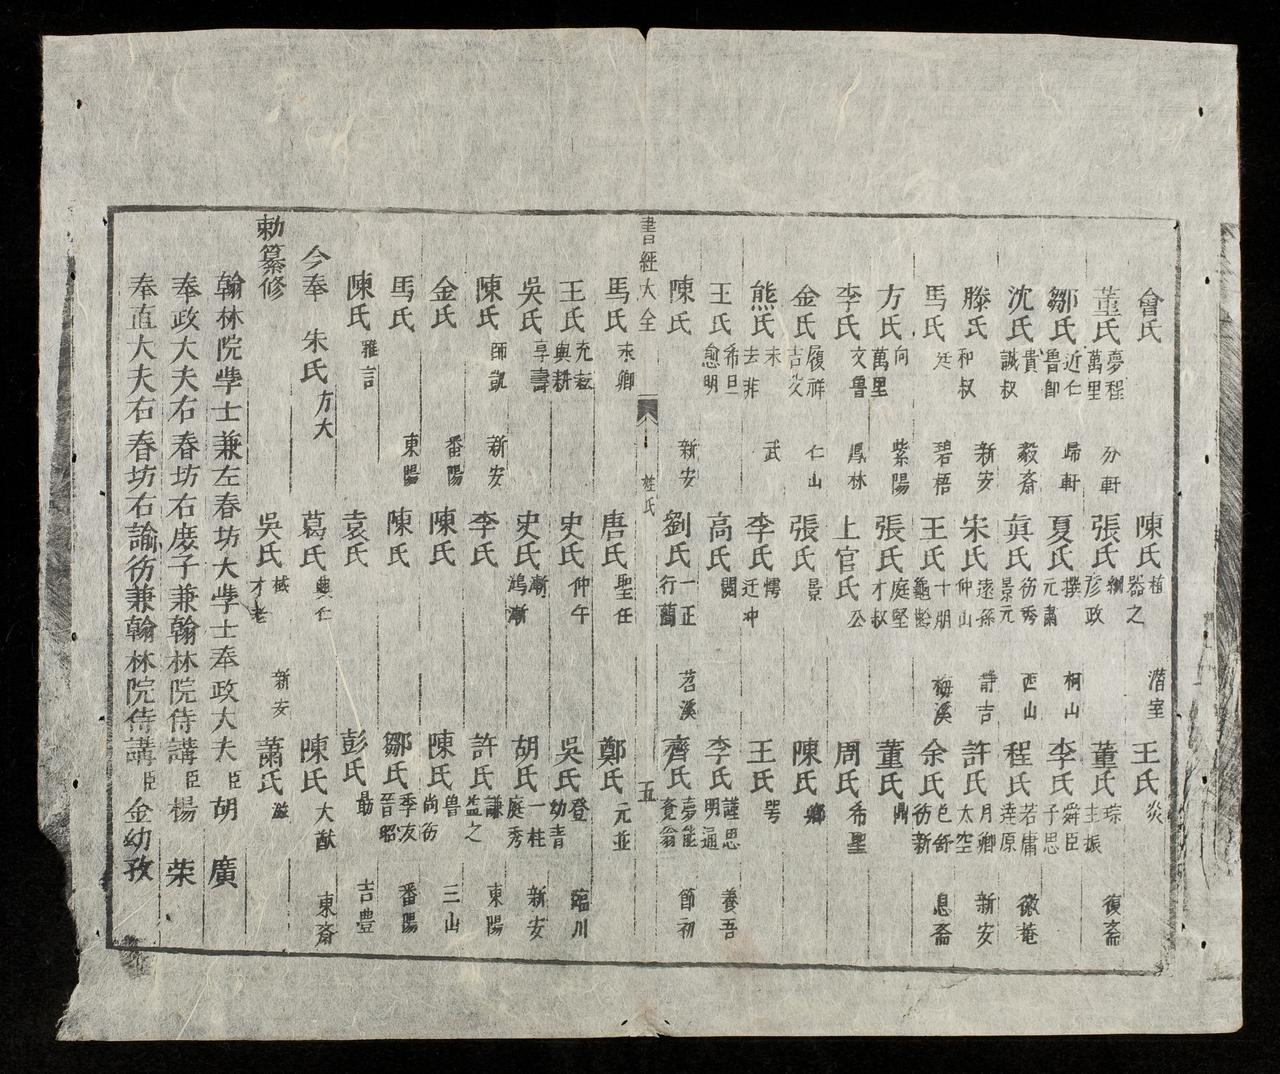 會氏 陳氏 植 器之 潛室 王氏 炎
董氏 夢程 萬里 介軒 張氏 彥政 董氏 琮 主振 復齋
鄒氏 近仁 魯卿 歸軒 夏氏 僎 元肅 柯山 李氏 舜臣 子思
沈氏 貴 誠叔 毅齋 真氏 德秀 景元 西山 程氏 若庸 達原 徽菴
滕氏 和叔 新安 宋氏 遠孫 仲山 靜吉 許氏 月卿 太空 新安
馬氏 廷 碧梧 王氏 十朋 龜齡 梅溪 余氏 芑舒 德新 息齋
方氏 向 萬里 紫陽 張氏 庭堅 才叔 董氏 鼎
李氏 文魯 鳳林 上官氏 公 周氏 希聖
金氏 履祥 吉父 仁山 張氏 景 陳氏
熊氏 禾 去非 武 李氏 王氏
王氏 希旦 愈明 高氏 閌 李氏 謹思 明通 養吾
陳氏 新安 劉氏 一正 行簡 苕溪 齊氏 夢龍 覺翁 節初
書經大全 姓氏 五
馬氏 來卿 唐氏 聖任 鄭氏 元並
王氏 充耘 與耕 史氏 仲午 吳氏 登 幼青 臨川
吳氏 亨壽 史氏 漸 鴻漸 胡氏 一桂 庭秀 新安
陳氏 師凱 新安 李氏 許氏 謙 益之 東陽
金氏 番陽 陳氏 陳氏 尚德 三山
馬氏 東陽 陳氏 鄒氏 季友 晉昭 番陽
陳氏 雅言 袁氏 彭氏 勗 吉豊
今奉 朱氏 方大 葛氏 興仁 陳氏 大猷 東齋
勅纂修 吳氏 棫 才老 新安 蕭氏 滋
翰林院學士兼左春坊大學士奉政大夫臣胡 廣
奉政大夫右春坊右庶子兼翰林院侍講臣楊 榮
奉直大夫右春坊右諭德兼翰林院侍講臣金幼孜